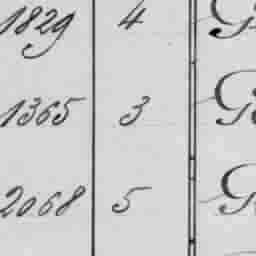 1829 4 G
1365 3 G
2068 5 G